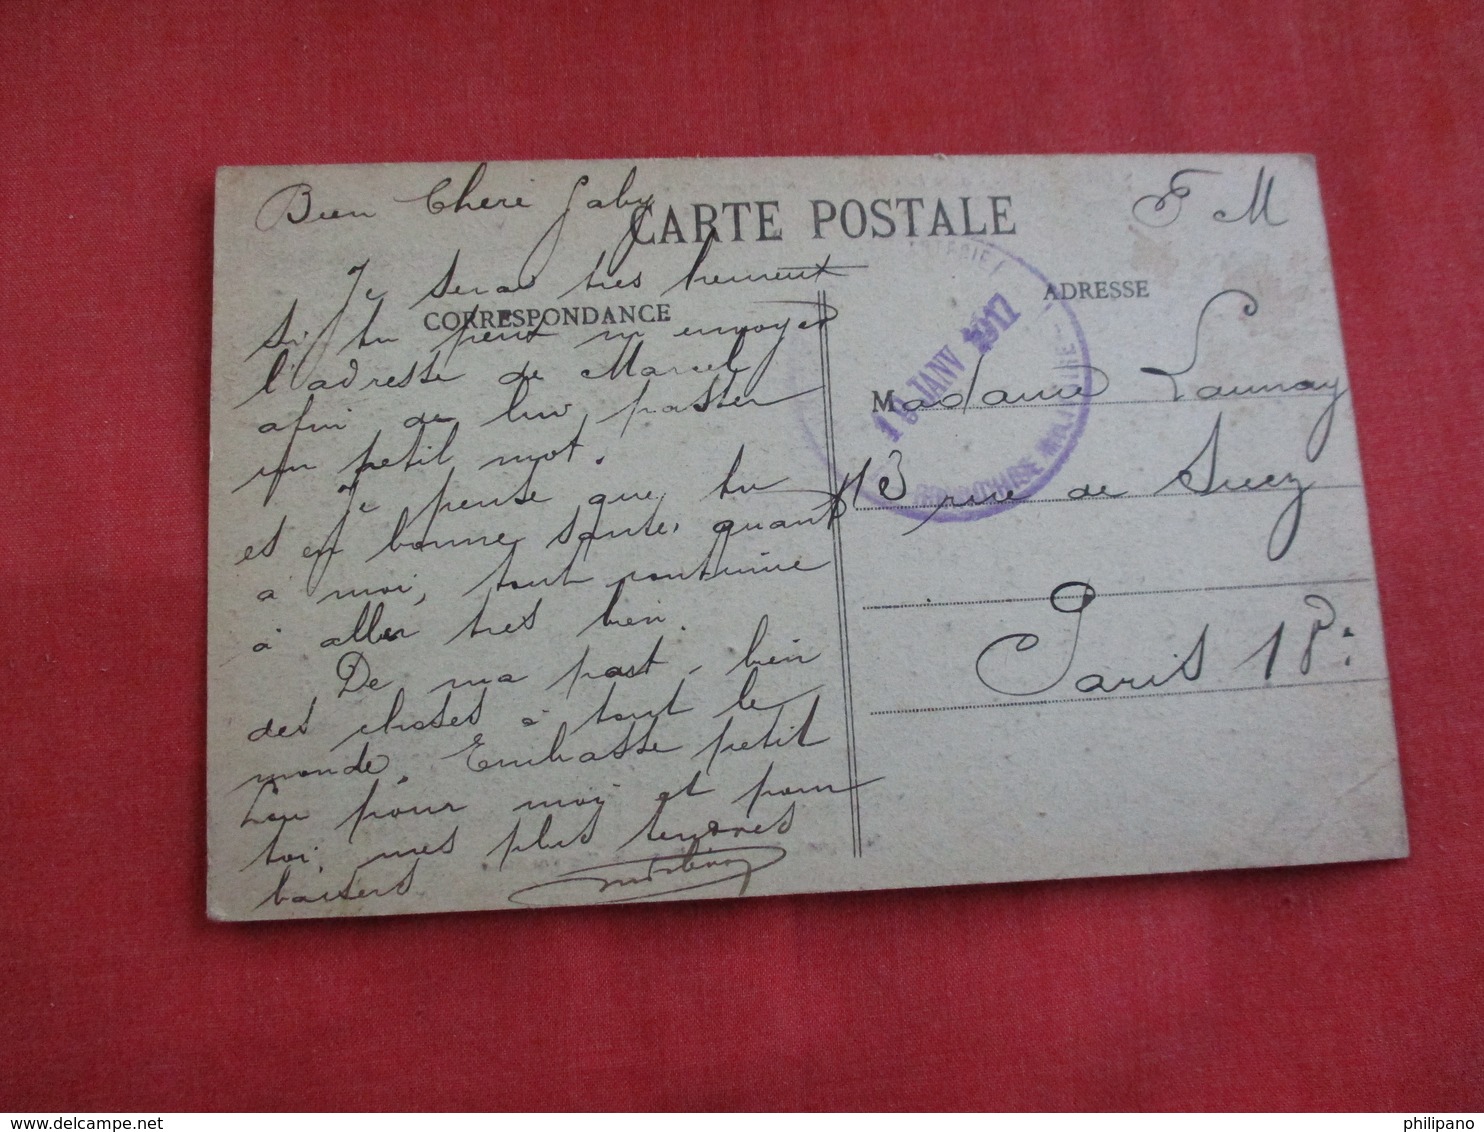 Bien Cheri Gaby
CARTE POSTALE
F M
Je serai tres heureux
CORRESPONDANCE
si tu peux m'envoyer
l'adresse de Marcel,
afin de lui passer
un petit mot.
Je pense que tu
es en bonne sante, quant
a moi, tout continue
à aller tres bien.
De ma part, bien
des choses à tout le
monde. Embrasse petit
Lou pour moi et pour
toi, mes plus tendres
baisers
ADRESSE
10 JANV 1917
FRANCHISE MILITAIRE
Madame Launay
13 rue de Suez
Paris 18e.
philipano